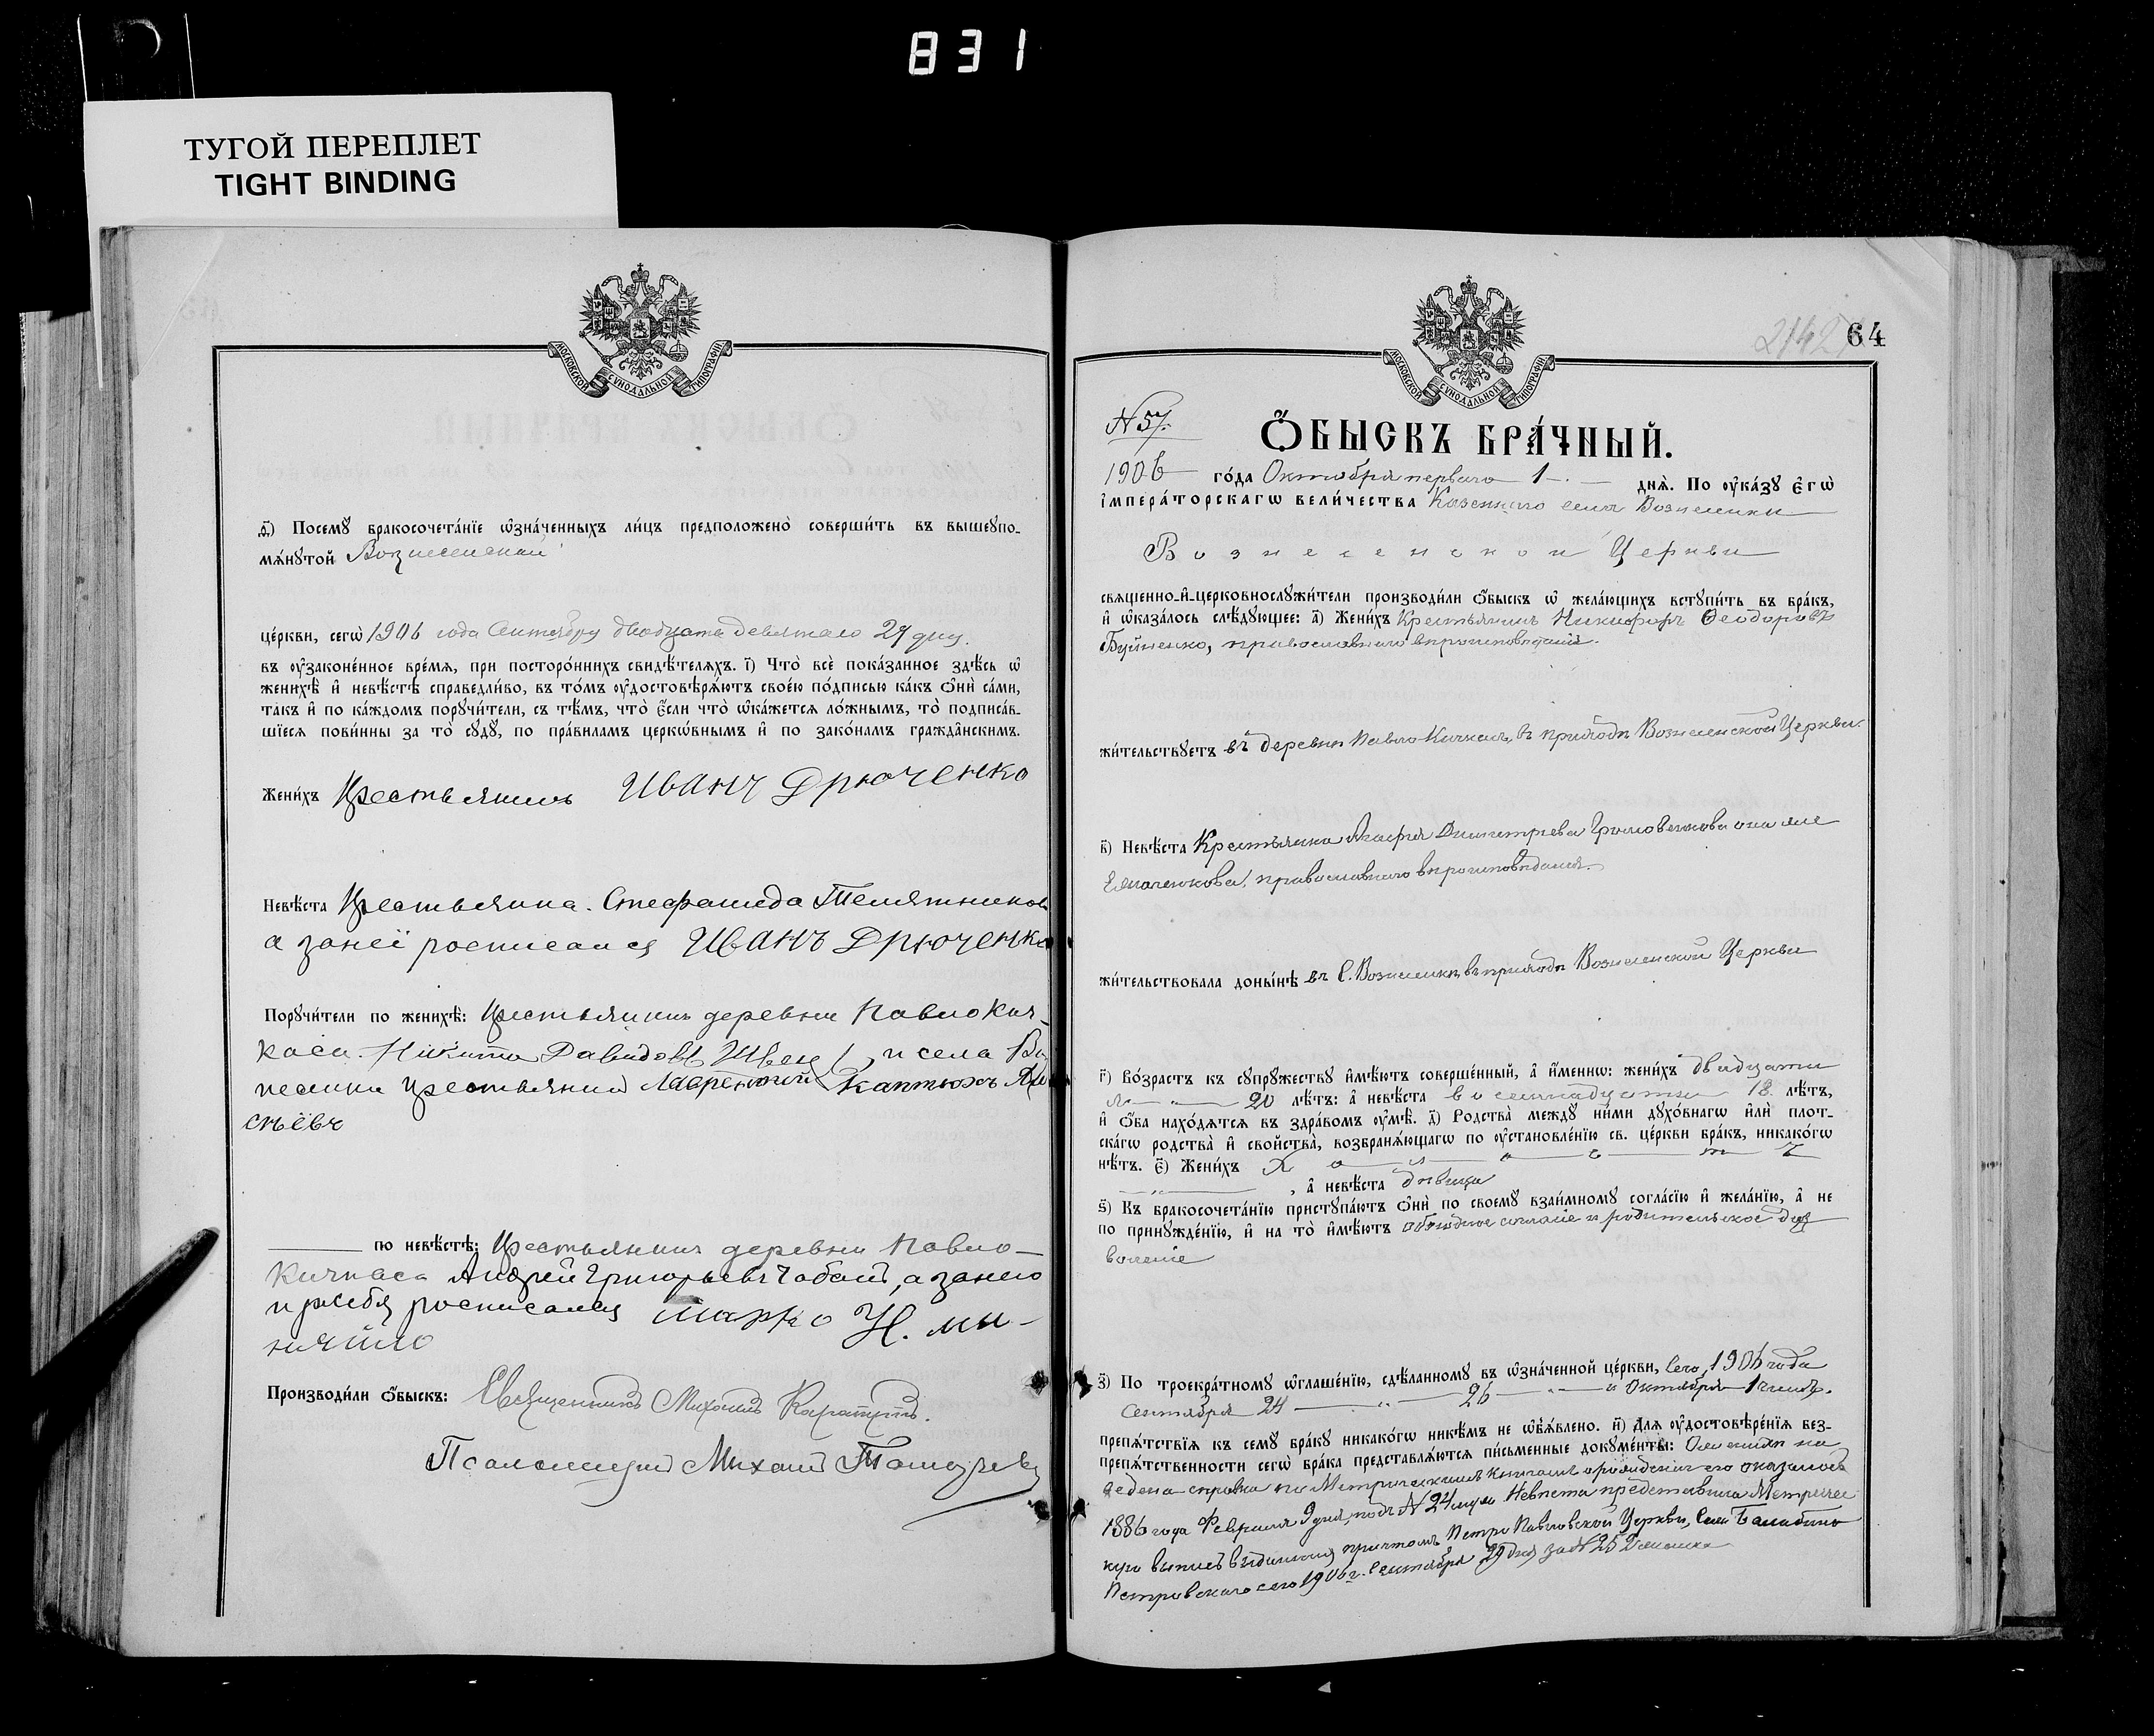 831
ТУГОЙ ПЕРЕПЛЕТ
TIGHT BINDING
МОСКОВСКОЙ СУНОДАЛЬНОЙ ТИПОГРАФІИ
д҃) Посемꙋ бракосочета́нїе ѡ҆зна́ченныхъ ли́цъ предположено̀ соверши́ть въ вышеꙋпо-
мѧ́нꙋтой Вознесенской
це́ркви, сегѡ̀ 1906 года Сентября двадцать девятаго 29 дня.
въ ᲂу҆законе́нное вре́мѧ, при посторо́ннихъ свидѣ́телѧхъ. і҃) Что̀ всѐ пока́занное здѣ́сь ѡ҆
женихѣ̀ и҆ невѣ́стѣ справедли́во, въ то́мъ ᲂу҆достовѣрѧ́ютъ свое́ю по́дписью ка́къ ѻ҆нѝ са́ми,
та́къ и҆ по ка́ждомъ порꙋчи́тели, съ тѣ́мъ, что̀ є҆́сли что̀ ѡ҆ка́жетсѧ ло́жнымъ, то̀ подписа́в-
шїесѧ пови́нны за то̀ сꙋдꙋ̀, по пра́виламъ церко́внымъ и҆ по зако́намъ гражда̂нскимъ.
Жени́хъ Крестьянинъ Иванъ Дрюченко
Невѣ́ста Крестьянка. Стефанида Телятников
а занеї росписался Иванъ Дрюченко
Порꙋчи́тели по женихѣ̀: Крестьянинъ деревни Павло Кич-
каса. Никита Давидовъ Швец, и села Воз
несенки Крестьянинъ Лаврентий Каптюхъ
сѣевъ
по невѣ́стѣ: Крестьянинъ деревни Павло-
Кичкаса Андрей Григорьевъ Чабанъ, а занего
и росписался Марко Н. Ми-
няйло
Производи́ли ѻ҆́быскъ: Священникъ Михаилъ
Псаломщикъ Михаилъ
2142 64
МОСКОВСКОЙ СУНОДАЛЬНОЙ ТИПОГРАФІИ
N 57.
Ѻ҆́БЫСКЪ БРА́ЧНЫЙ.
1906 го́да Октября первого 1 днѧ̀. По ᲂу҆ка́зꙋ є҆гѡ̀
і҆мпера́торскагѡ вели́чества Казеннаго села Вознесенки
Вознесенской Церкви
свѧще́нно-и҆-церковнослꙋжи́тели производи́ли ѻ҆́быскъ ѡ҆ жела́ющихъ встꙋпи́ть въ бра́къ,
и҆ ѡ҆каза́лось слѣ́дꙋющее: а҃) Жени́хъ Крестьянинъ Никифоръ Ѳеодоровъ
Буйненко, православнаго вѣроисповѣданія.
жи́тельствꙋетъ въ деревни Павло Кичкасъ, въ приходѣ Вознесенской Церкви.
в҃) Невѣ́ста Крестьянка Агафія Димитріева она же
православнаго вѣроисповѣданія.
жи́тельствовала доны́нѣ въ с. Вознесенкѣ, въ приходѣ Вознесенской Церкви
г҃) Во́зрастъ къ сꙋпрꙋ́жествꙋ и҆мѣ́ютъ соверше́нный, а҆ и҆́меннѡ: жени́хъ двадцати
20 лѣ́тъ: а҆ невѣ́ста восемнадцати 18 лѣ́тъ,
и҆ ѻ҆́ба нахо́дѧтсѧ въ здра́вомъ ᲂу҆мѣ̀. д҃) Родства̀ междꙋ ни́ми дꙋхо́внагѡ и҆лѝ плот-
ска́гѡ родства̀ и҆ свойства̀, возбранѧ́ющагѡ по ᲂу҆становле́нїю св. це́ркви бра́къ, никако́гѡ
нѣ́тъ. є҃) Жени́хъ Холостъ
, а҆ невѣ́ста дѣвица
ѕ҃) Къ бракосочета́нїю пристꙋпа́ютъ ѻ҆нѝ по своемꙋ̀ взаи́мномꙋ согла́сїю и҆ жела́нїю, а҆ не
по принꙋжде́нїю, и҆ на то̀ и҆мѣ́ютъ обоюдное согласіе и родительское доз
воленіе
з҃) По троекра́тномꙋ ѡ҆глаше́нїю, сдѣ́ланномꙋ въ ѡ҆зна́ченной це́ркви, сего 1906 года
Сентября 24 26 и Октября 1 числа.
препѧ́тствїѧ къ семꙋ̀ бра́кꙋ никако́гѡ никѣ́мъ не ѡ҆б̾ѧ́влено. и҃) Длѧ ᲂу҆достовѣре́нїѧ без-
препѧ́тственности сегѡ̀ бра́ка представлѧ́ютсѧ пи́сьменные докꙋме́нты: О женихѣ на
ведена справка по Метрическимъ книгамъ о рожденіи его оказалось
1886 года Февраля 9 дня, подъ N 24 муж. Невѣста представила Метричес
кую выпись выданную причтомъ Петро Павловской Церкви, Села Балабино
Петровскаго сего 1906 г. Сентября 29 дня за N 252